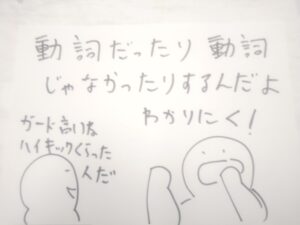 動詞だったり動詞
じゃなかったりするんだよ
わかりにく！
ガード高いな
ハイキックくらった
んだ